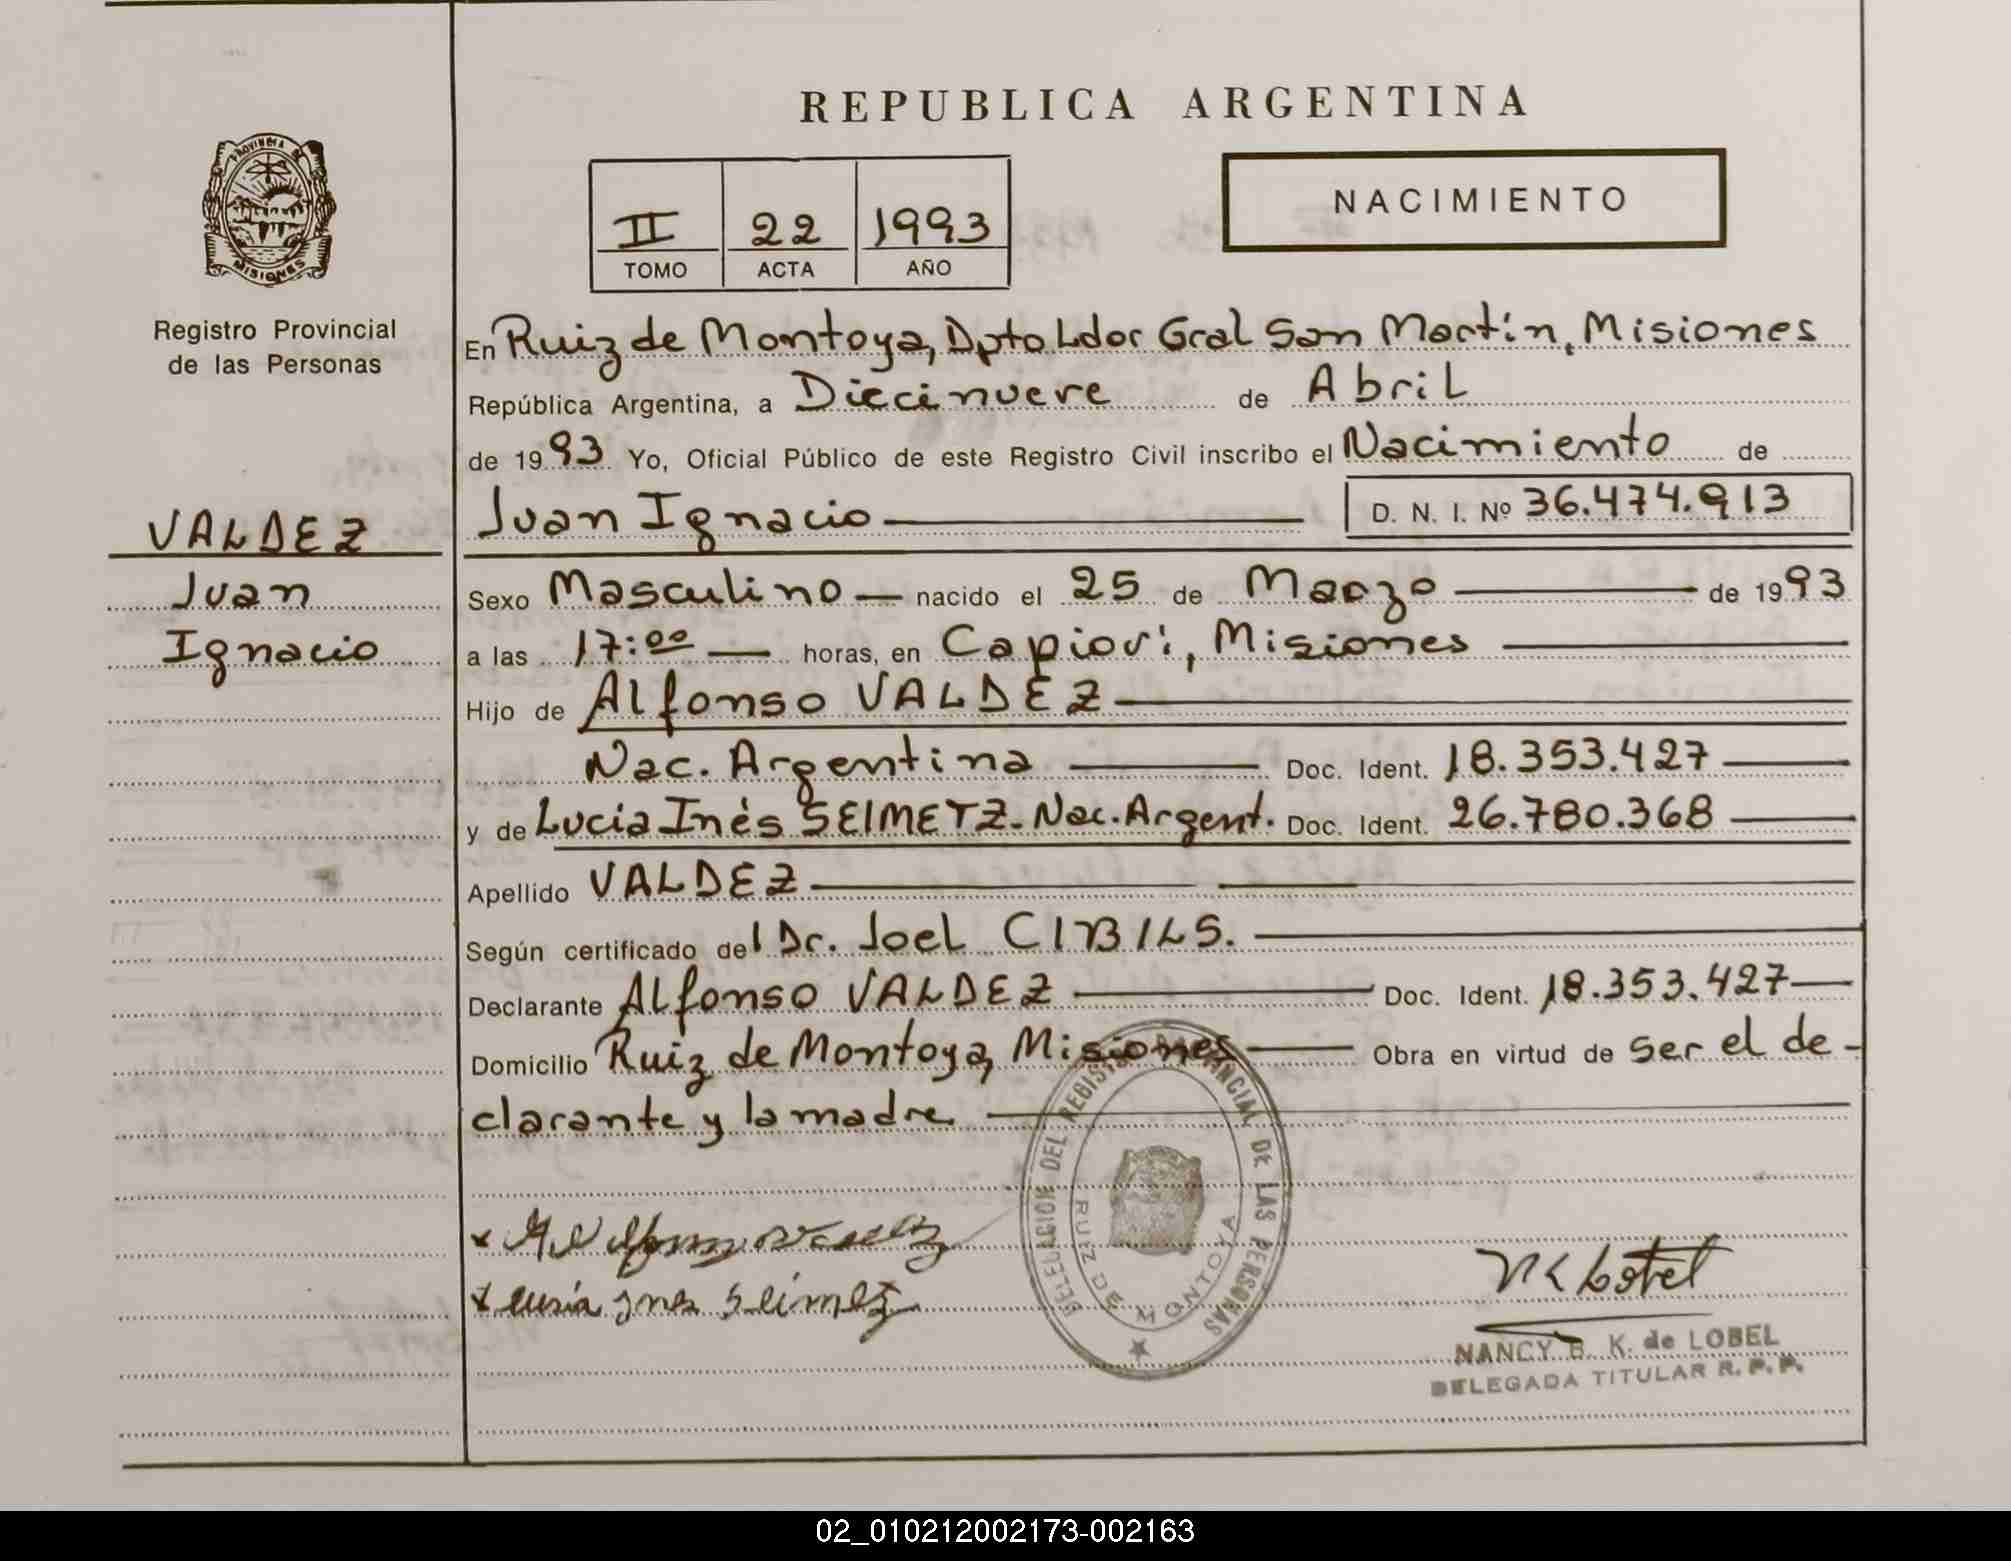 REPUBLICA ARGENTINA
PROVINCIA DE
MISIONES
Registro Provincial
de las Personas
II 22 1993
TOMO ACTA AÑO
NACIMIENTO
En Ruiz de Montoya, Dpto Ldor Gral San Martín, Misiones
República Argentina, a Diecinueve de Abril
de 1993 Yo, Oficial Público de este Registro Civil inscribo el Nacimiento de
VALDEZ
Juan
Ignacio
Juan Ignacio D. N. I. Nº 36.474.913
Sexo Masculino nacido el 25 de Marzo de 1993
a las 17:00 horas, en Capioví, Misiones
Hijo de Alfonso VALDEZ
Nac. Argentina Doc. Ident. 18.353.427
y de Lucia Inés SEIMETZ- Nac. Argent. Doc. Ident. 26.780.368
Apellido VALDEZ
Según certificado del Dr. Joel CIBILS.
Declarante Alfonso VALDEZ Doc. Ident. 18.353.427
Domicilio Ruiz de Montoya, Misiones Obra en virtud de ser el de-
clarante y la madre
DELEGACION DEL REGISTRO PROVINCIAL DE LAS PERSONAS
RUIZ DE MONTOYA
NANCY B. K. de LOBEL
DELEGADA TITULAR R. P. P.
02_010212002173-002163